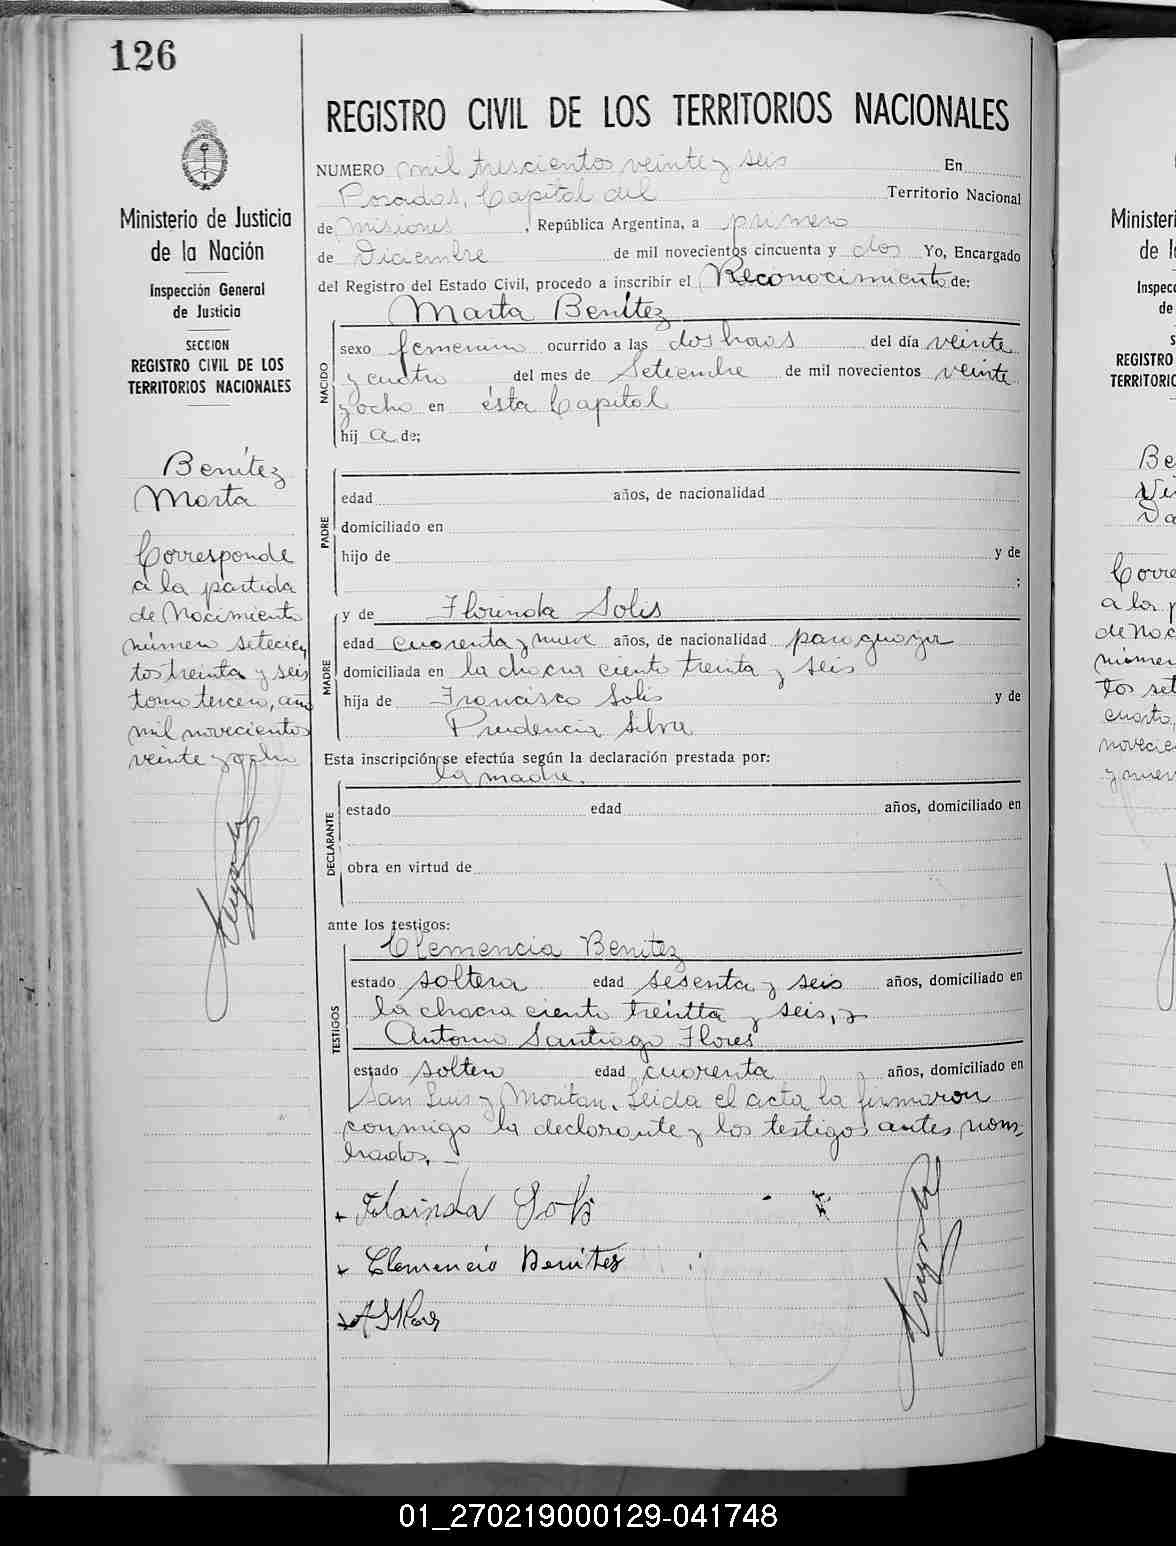 126
Ministerio de Justicia
de la Nación
Inspección General
de Justicia
SECCION
REGISTRO CIVIL DE LOS
TERRITORIOS NACIONALES
Benítez
Marta
Corresponde
a la partida
de Nacimiento
número setecien
tos treinta y seis
tomo tercero, año
mil novecientos
veinte y ocho
REGISTRO CIVIL DE LOS TERRITORIOS NACIONALES
NUMERO mil trescientos veinte y seis En
Posadas, Capital del Territorio Nacional
de Misiones, República Argentina, a primero
de Diciembre de mil novecientos cincuenta y dos Yo, Encargado
del Registro del Estado Civil, procedo a inscribir el Reconocimiento de:
Marta Benítez
NACIDO
sexo femenino ocurrido a las dos horas del día veinte
y cuatro del mes de Setiembre de mil novecientos veinte
y ocho en ésta Capital
hij a de;
PADRE
edad años, de nacionalidad
domiciliado en
hijo de y de
;
MADRE
y de Florinda Solis
edad cuarenta y nueve años, de nacionalidad paraguaya
domiciliada en la chacra ciento treinta y seis
hija de Francisco Solis y de
Prudencia Silva
Esta inscripción se efectúa según la declaración prestada por:
la madre.
DECLARANTE
estado edad años, domiciliado en
obra en virtud de
ante los testigos:
TESTIGOS
Clemencia Benitez
estado soltera edad sesenta y seis años, domiciliado en
la chacra ciento treintta y seis, y
Antonio Santiago Flores
estado soltero edad cuarenta años, domiciliado en
San Luis y Moritan. Leida el acta la firmaron
conmigo la declarante y los testigos antes nom-
brados. —
Clemencia Benites
Minister
de l
Inspec
de
S
REGISTRO
TERRITORIO
Be
Corre
a la p
de Nac
númer
tos set
cuarto,
novecie
y nuev
01_270219000129-041748